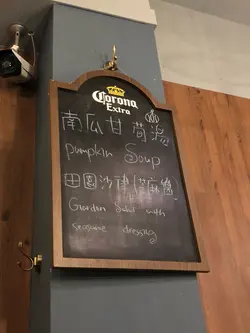 Corona
Extra
南瓜甘荀湯
Pumpkin Soup
田園沙律伴麻醬
Garden Salad with
sesame dressing